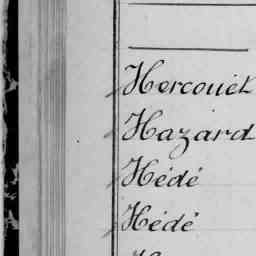 Hercouët
Hazard
Hédé
Hédé